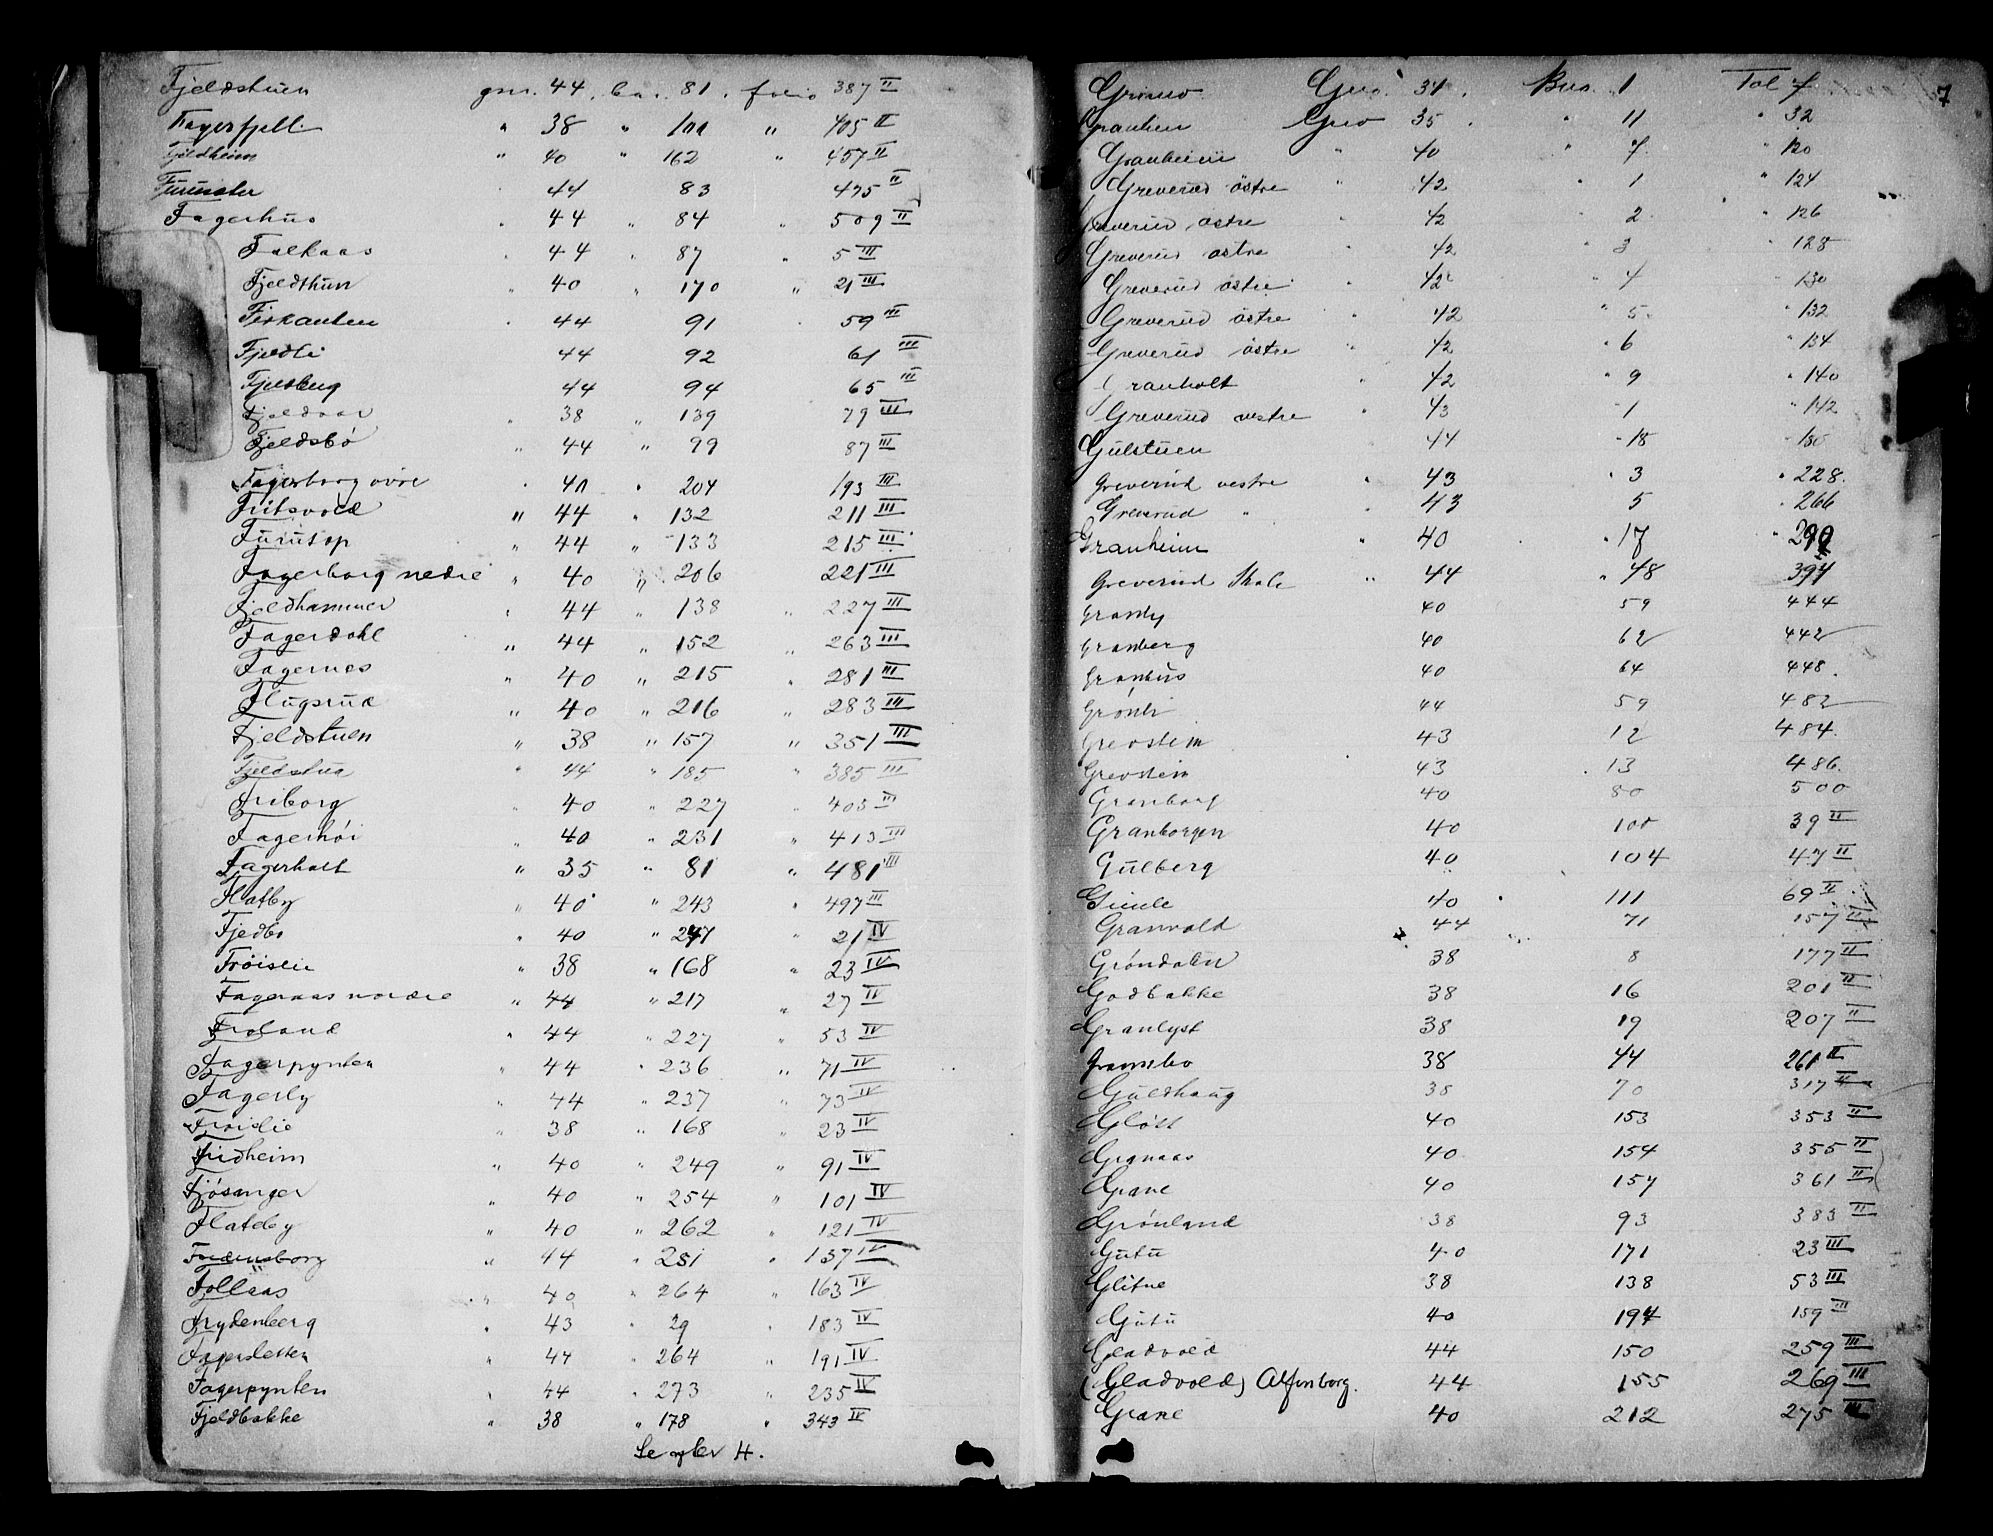 Fjeldstuen gnr. 44. bnr. 81. folio 387 II
Fagerfjell " 38 " 101 " 405 II
Fjeldheim " 40 " 162 " 457 II
Furusæter 44 83 475 II
Fagerhus " 44 " 84 " 509 II
Falkaas " 44 " 87 " 5 III
Fjeldthun " 40 " 170 " 21 III
Firkanten " 44 91 59 III
Fjeldli 44 92 61 III
Fjelberg 44 94 65 III
38 " 139 79 III
Fjeldsbö " 44 " 99 87 III
Fagerborg övre " 40 " 204 193 III
Fritsvold " 44 " 132 211 III
Furutop " 44 " 133 215 III
Fagerborg nedre " 40 " 206 221 III
Fjeldhammer " 44 " 138 " 227 III
Fagerdahl " 44 " 152 " 263 III
Fagernes " 40 " 215 " 281 III
Flugsrud " 40 " 216 " 283 III
Fjeldstuen " 38 " 157 " 351 III
Fjeldstua " 44 " 185 " 385 III
Friborg " 40 " 227 " 403 III
Fagerhöi " 40 " 231 " 413 III
Fagerholt " 35 " 81 " 481 III
Flatby " 40 " 243 " 497 III
Fjedbo " 40 " 247 " 21 IV
Fröislie " 38 " 168 " 23 IV
Fageraas nordre " 44 " 217 " 27 IV
Froland " 44 " 227 " 53 IV
Fagerpynten " 44 " 236 " 71 IV
Fagerly " 44 " 237 " 73 IV
Froislie 38 " 168 " 23 IV
Fridheim " 40 " 249 " 91 IV
Fjösanger " 40 " 254 " 101 IV
Flateby " 40 " 262 " 121 IV
Fredensborg " 44 " 251 " 137 IV
Follaas " 40 " 264 " 163 IV
Frydenberg " 43 " 29 " 183 IV
Fagersletten " 44 " 264 " 191 IV
Fagerpynten " 44 " 273 " 235 IV
Fjeldbakke " 38 " 178 " 343 IV
Se efter H.
7
Gno. 31. Bno. 1 Fol 7
Granlien Gno 35. " 11 " 32
Granheim " 40 " 7 " 120
Greverud östre " 42 " 1 " 124
Greverud östre " 42 " 2 " 126
Greverud östre " 42 " 3 " 128
Greverud östre " 42 " 4 " 130
Greverud östre " 42 " 5 " 132
Greverud östre " 42 " 6 " 134
Granholt " 42 " 9 " 140
Greverud vestre " 43 " 1 " 142
Gulstuen 44 " 18 " 180
Greverud vestre " 43 " 3 " 228.
Greverud " " 43 5 " 266
Granheim " 40 " 17 " 290
Greverud Skole " 44 " 48 394
Granly 40 59 444
Granberg 40 62 442
Granhus 40 64 448.
Grönli 44 59 482
Grevstein 43 12 484.
Grevstein 43 13 486.
Granborg 40 80 500
Granborgen 40 100 39 II
Gulberg 40 104 47 II
Gimle 40 111 69 II
Granvold 44 71 157 II
Gröndalen 38 8 177 II
Godbakke 38 16 201 II
Granlyst 38 19 207 II
Gransbo 38 44 261 II
Guldhaug 38 70 317 II
Glött 40 153 353 II
Granaas 40 154 355 II
Grane 40 157 361 II
Grönland 38 93 383 II
Gutu 40 171 23 III
Glitne 38 138 53 III
Gutu 40 194 159 III
Gladvold 44 150 259 III
(Gladvold) Alfenborg. 44 155 269 III
Grane 40 212 275 III